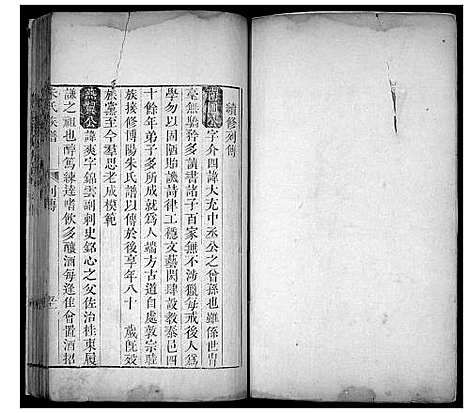 續修列傳
公字介四諱大充中丞公之曾孫也雖係世冑
毫無驕矜多讀書諸子百家無不涉獵每戒後人
學勿以固陋貽譏詩律工穩文藝閎肆設教泰邑四
十餘年弟子多所成就為人端方古道自處敦宗睦
族接修博陽朱氏譜以傳於後享年八十 歲旣歿
族黨至今羣思老成模範
燕翼公諱爽字錦雲副刺史銘心之父佐治桂東履
謙之祖也醇篤練達嗜飲多釀酒每逢佳會置酒招
朱氏族譜 列傳